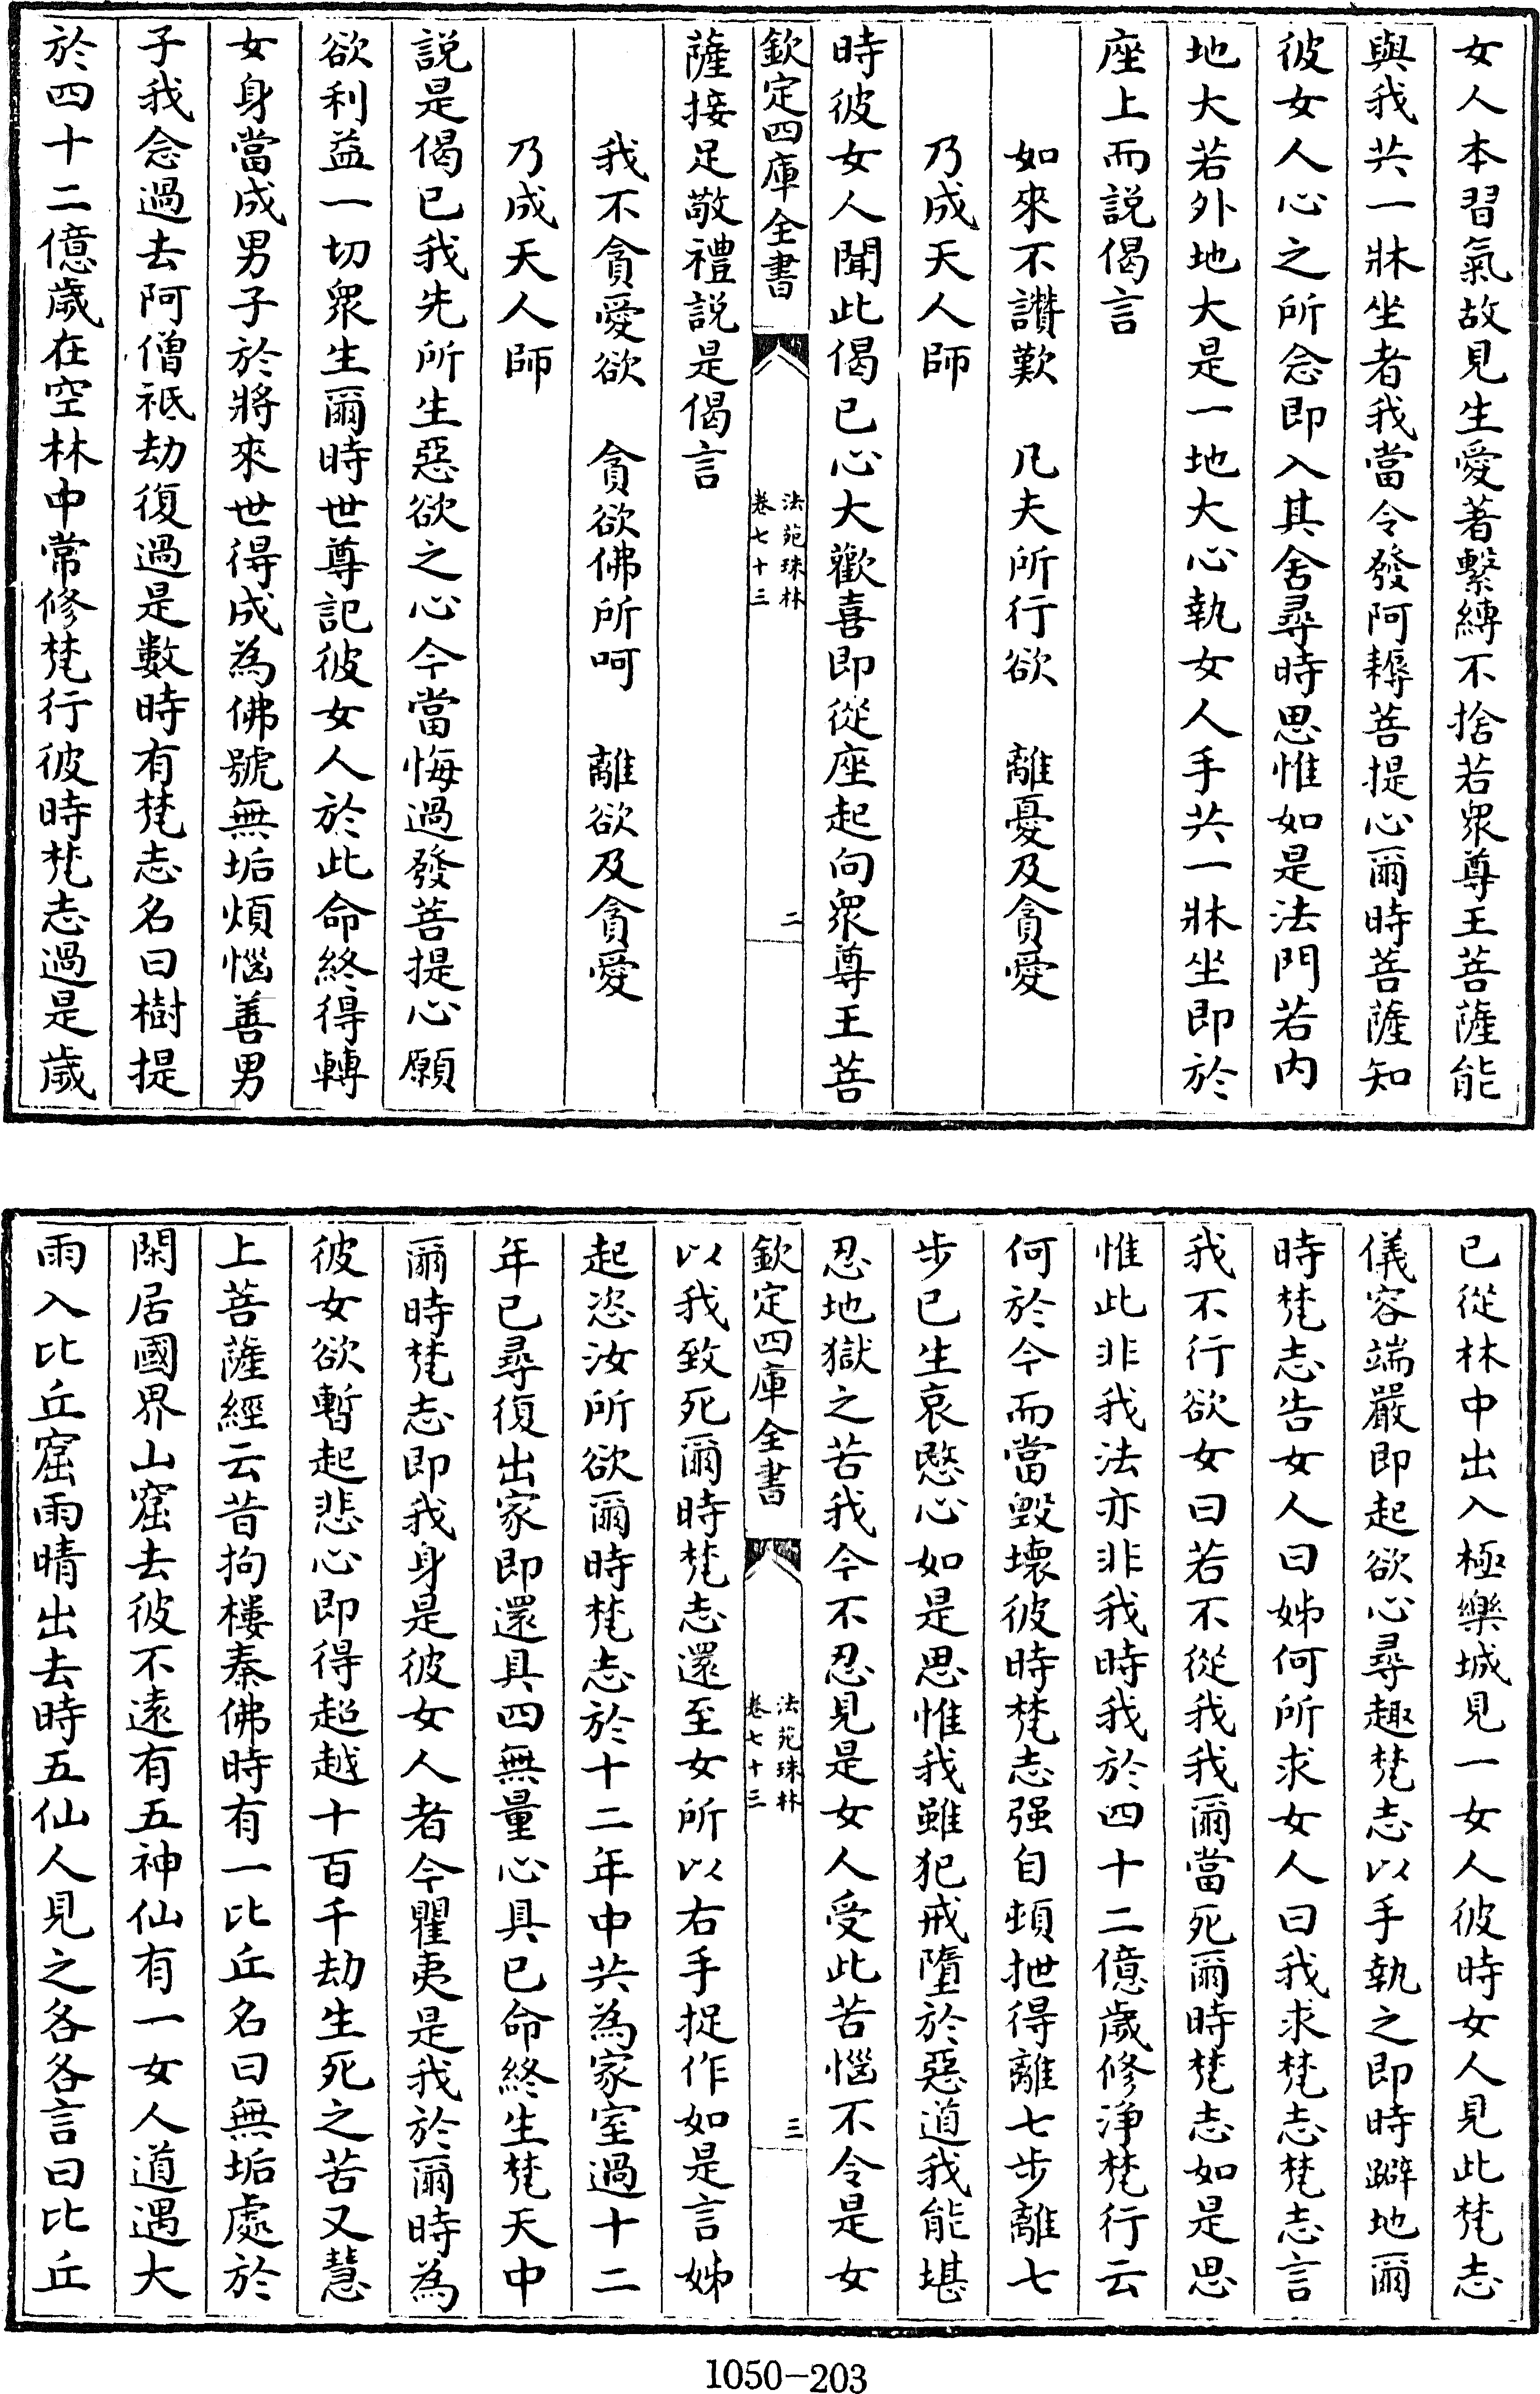 女人本習氣故見生愛著繫縛不捨若衆尊王菩薩能
與我共一牀坐者我當令發阿耨菩提心爾時菩薩知
彼女人心之所念即入其舍尋時思惟如是法門若内
地大若外地大是一地大心執女人手共一牀坐即於
座上而説偈言
如來不讃歎　凡夫所行欲　離憂及貪愛
乃成天人師
時彼女人聞此偈已心大歡喜即從座起向衆尊王菩
欽定四庫全書
法苑珠林
卷七十三
二
薩接足敬禮説是偈言
我不貪愛欲　貪欲佛所呵　離欲及貪愛
乃成天人師
説是偈已我先所生惡欲之心今當悔過發菩提心願
欲利益一切衆生爾時世尊記彼女人於此命終得轉
女身當成男子於將來世得成為佛號無垢煩惱善男
子我念過去阿僧祇劫復過是數時有梵志名曰樹提
於四十二億歲在空林中常修梵行彼時梵志過是歲
已從林中出入極樂城見一女人彼時女人見此梵志
儀容端嚴即起欲心尋趣梵志以手執之即時躃地爾
時梵志告女人曰姊何所求女人曰我求梵志梵志言
我不行欲女曰若不從我我爾當死爾時梵志如是思
惟此非我法亦非我時我於四十二億歲修淨梵行云
何於今而當毁壞彼時梵志强自頓抴得離七步離七
步已生哀愍心如是思惟我雖犯戒墮於惡道我能堪
忍地獄之苦我今不忍見是女人受此苦惱不令是女
欽定四庫全書
法苑珠林
卷七十三
三
以我致死爾時梵志還至女所以右手捉作如是言姊
起恣汝所欲爾時梵志於十二年中共為家室過十二
年已尋復出家即還具四無量心具已命終生梵天中
爾時梵志即我身是彼女人者今瞿夷是我於爾時為
彼女欲暫起悲心即得超越十百千劫生死之苦又慧
上菩薩經云昔拘樓秦佛時有一比丘名曰無垢處於
閑居國界山窟去彼不遠有五神仙有一女人道遇大
雨入比丘窟雨晴出去時五仙人見之各各言曰比丘
1050-203